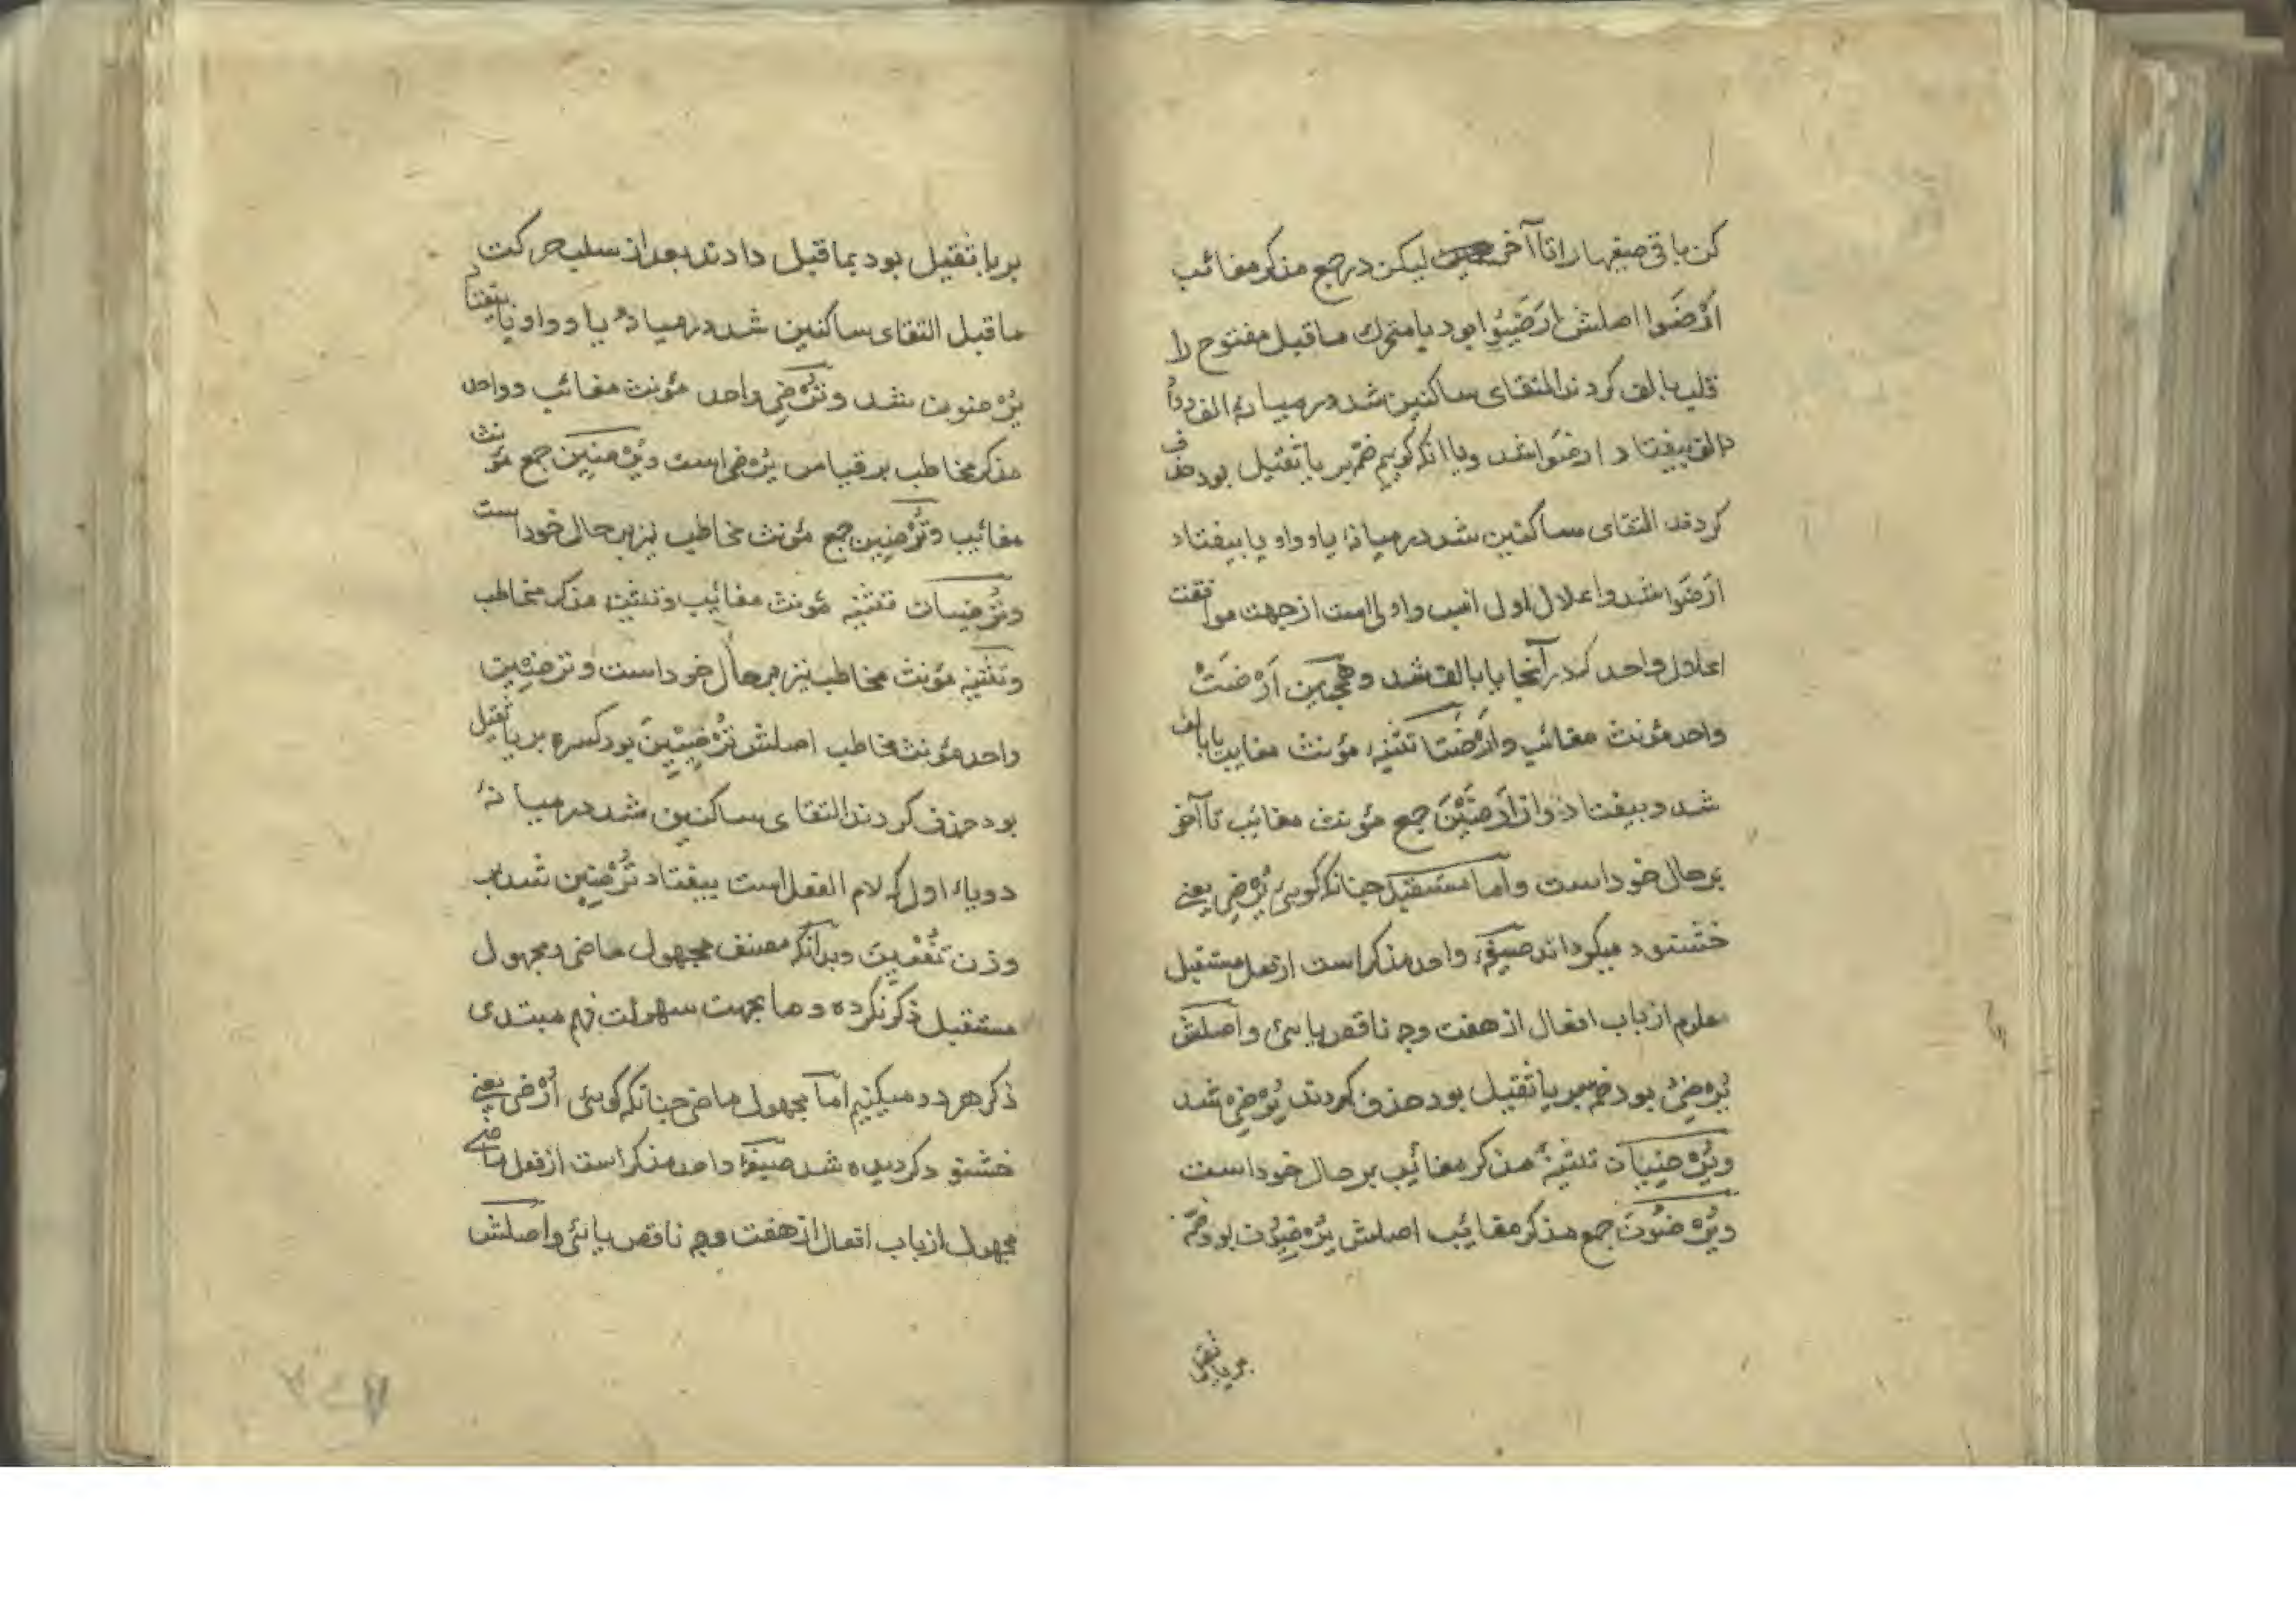 کن باقی صیغهارا تا آخر لیکن در جمع مذکر مغائب
اَرْضَوا اصلش اَرضَیُوا بود یا متحرک ماقبل مفتوح را
قلب بالف کردند التقای ساکنین شد در میانهٔ الف و واو
الف بیفتاد ارضَوا شد ویا انکه کوییم ضمّه بر یا ثقیل بود حذف
کردند التقای ساکنین شد در میانهٔ یا و واو یا بیفتاد
اَرْضَوا شد واعلال اولی انسب واولی است از جهت موافقت
اعلال واحد که در آنجا یا بالف شد وهمچنین اَرْضَتْ
واحد مؤنث مغائب واَرْضَتا تثنیهٔ مؤنث مغایب یا بالف
شد و بیفتاد واز اَرْضَیْنَ جمع مؤنث مغائب تا آخر
بر حال خود است واما مستقبل چنانکه کوبئ یُرْضِی یعنی
خشنود میکرداند صیغهٔ واحد مذکر است از فعل مستقبل
معلوم از باب افعال از هفت وجه ناقص یایئ واصلش
یُرْضِیُ بود ضمه بر یا ثقیل بود حذف کردند یُرْضِی شد
ویُرْضِیَان تثنیهٔ مذکر مغائب بر حال خود است
ویُرْضُونَ جمع مذکر مغائب اصلش یُرْضِیُون بود ضمّه
بریا ثقیل
بریا ثقیل بود بماقبل دادند بعد از سلب حرکت
ماقبل التقای ساکنین شد در میانهٔ یا و واو یا بیفتاد
یُرْضون شد وتُرْضِی واحد مؤنث مغائب و واحد
مذکر مخاطب بر قیاس یُرْضِی است ویُرْضِیْنَ جمع مؤنث
مغائب وتُرْضِینَ جمع مؤنث مخاطب نیز بر حال خود است
وتُرْضِیَان تثنیه مؤنث مغائب وتثنیهٔ مذکر مخاطب
وتثنیه مؤنث مخاطب نیز بر حال خود است وترضِیْنَ
واحد مؤنث مخاطب اصلش تُرْضِیِیْنَ بود کسره بر یا ثقیل
بود حذف کردند التقای ساکنین شد در میانهٔ
دو یاء اول که لام الفعل است بیفتاد تُرْضِین شد بر
وزن تُفْعِین وبدآنکه مصنف مجهول ماضی و مجهول
مستقبل ذکر نکرده و ما بجهت سهولت فهم مبتدی
ذکر هر دو میکنیم امّا مجهول ماضی چنانکه کوبئ اُرْضِیَ یعنی
خشنود کردیده شد صیغهٔ واحد مذکر است از فعل ماضی
مجهول از باب افعال از هفت وجه ناقص یائی واصلش